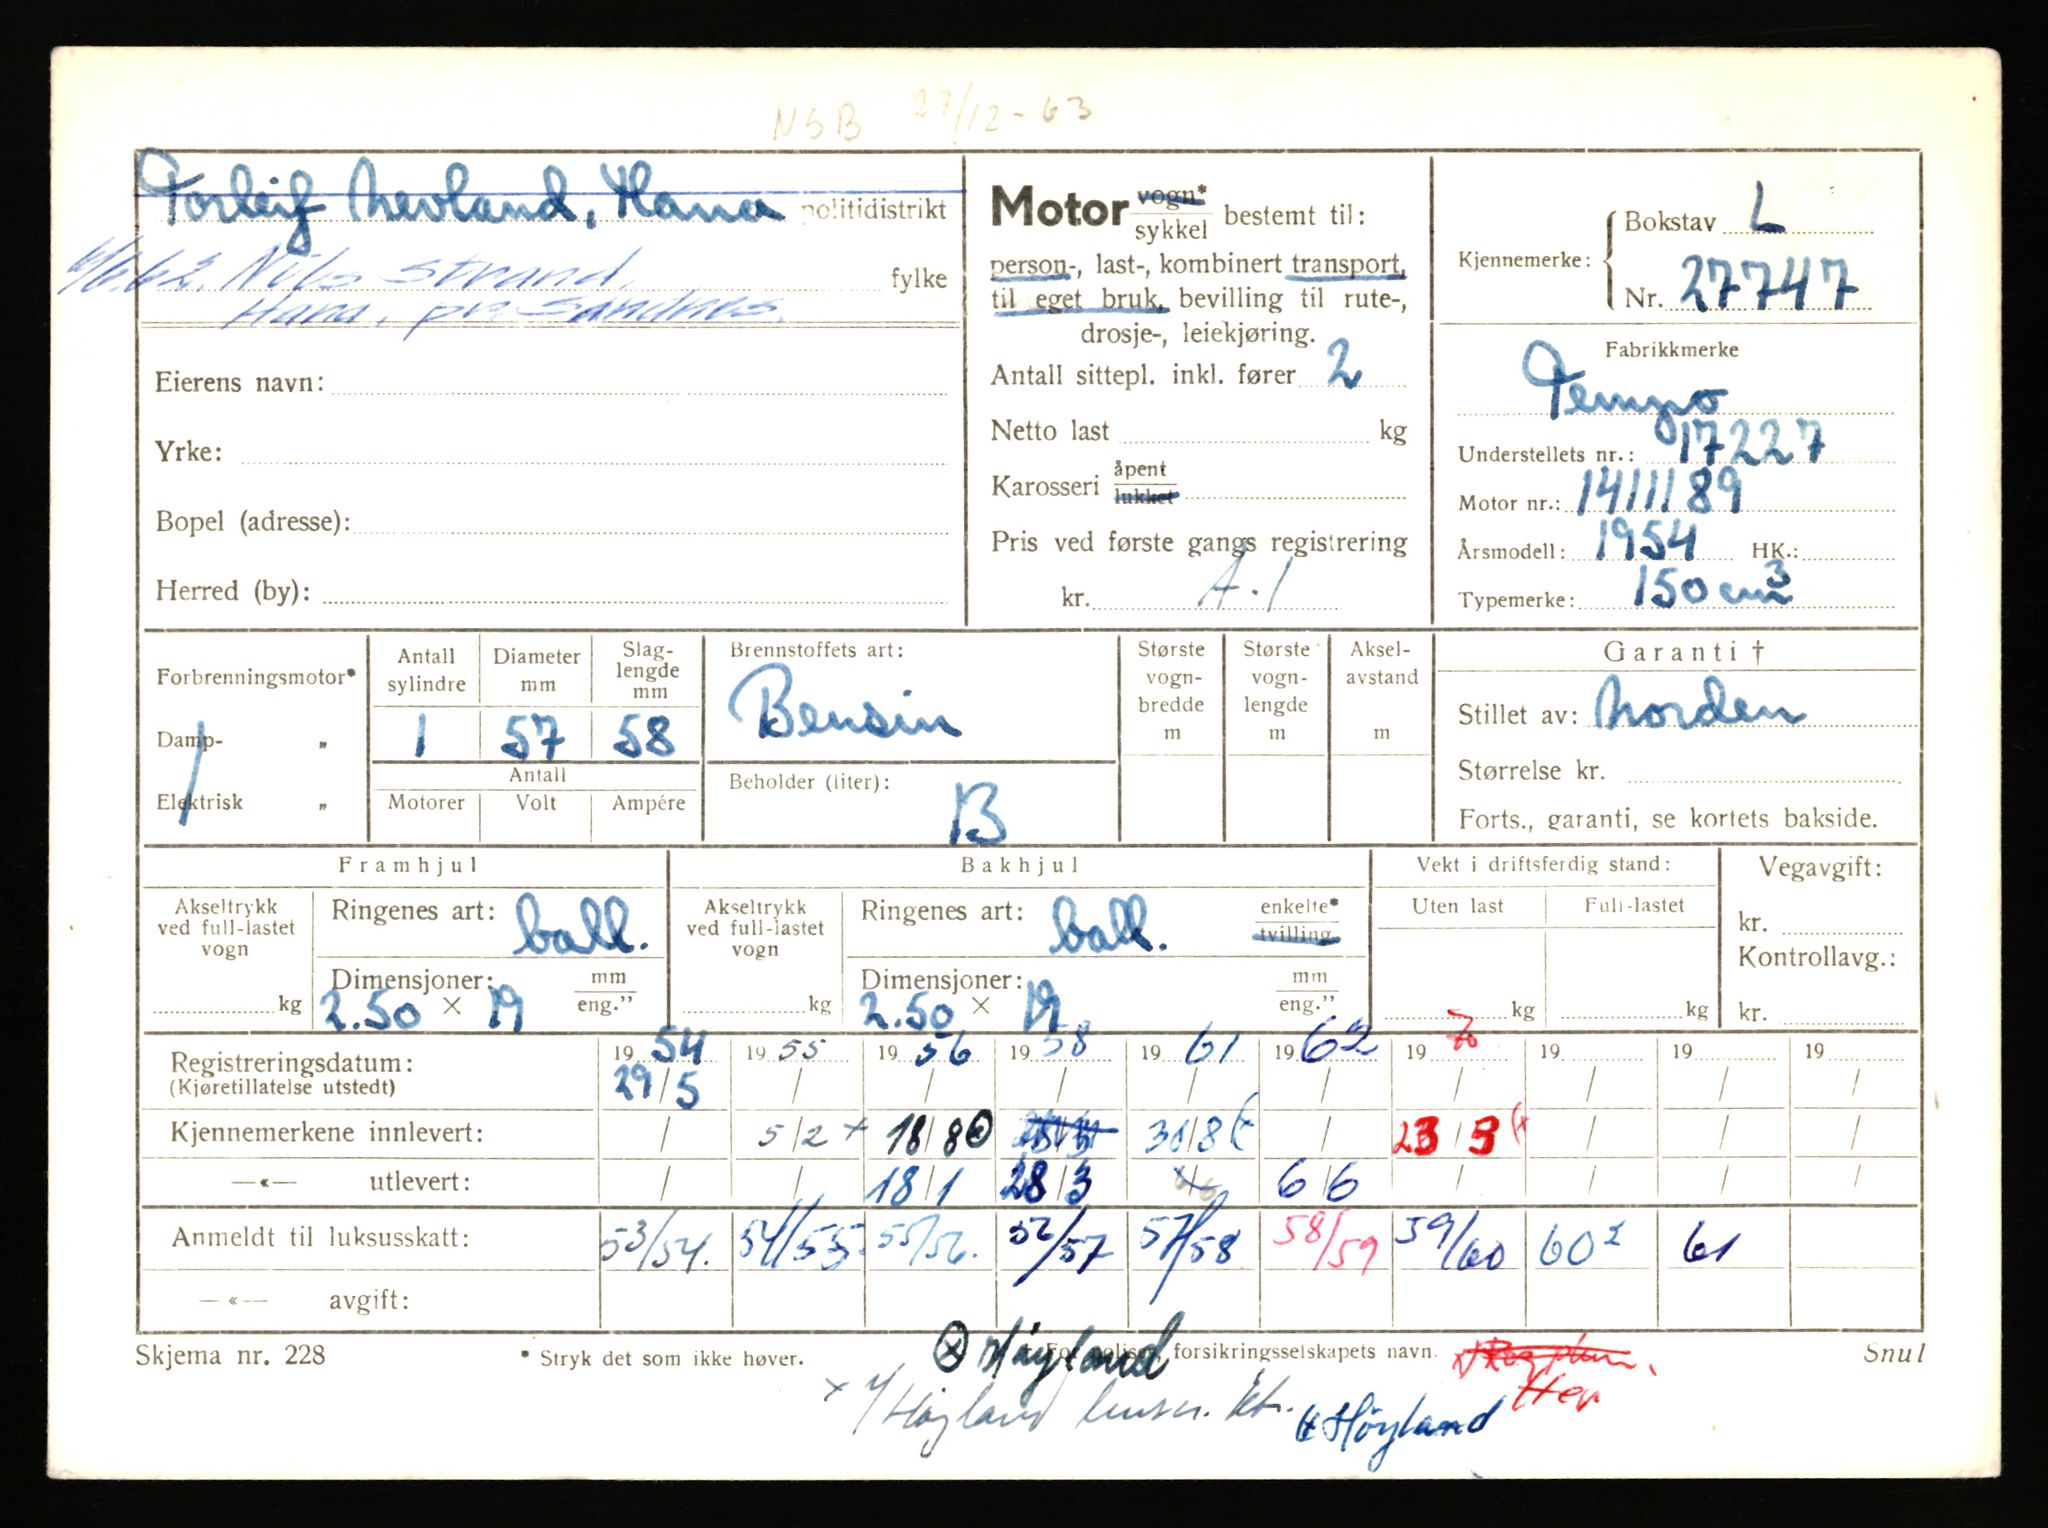 NSB 27/12-63
Torleif Nevland, Hana politidistrikt
6/6.62. Nils Strand, fylke
Hana, pr. Sandnes.
Eierens navn:
Yrke:
Bopel (adresse):
Herred (by):
Motor vogn* / sykkel bestemt til:
person-, last-, kombinert transport,
til eget bruk, bevilling til rute-,
drosje-, leiekjøring.
Antall sittepl. inkl. fører 2
Netto last kg
Karosseri åpent / lukket
Pris ved første gangs registrering
kr. A.1
Kjennemerke: Bokstav L
Nr. 27747
Fabrikkmerke
Tempo
Understellets nr.: 17227
Motor nr.: 1411189
Årsmodell: 1954 HK.:
Typemerke: 150 cm³
Forbrenningsmotor*
Damp- „
Elektrisk „
Antall sylindre 1
Diameter mm 57
Slaglengde mm 58
Antall
Motorer Volt Ampére
Brennstoffets art:
Bensin
Beholder (liter):
B
Største vognbredde m
Største vognlengde m
Akselavstand m
Garanti †
Stillet av: Norden
Størrelse kr.
Forts., garanti, se kortets bakside.
Framhjul
Akseltrykk ved full-lastet vogn kg
Ringenes art: ball.
Dimensjoner: mm / eng.”
2.50 × 19
Bakhjul
Akseltrykk ved full-lastet vogn kg
Ringenes art: ball. enkelte* / tvilling
Dimensjoner: mm / eng.”
2.50 × 19
Vekt i driftsferdig stand:
Uten last Full-lastet
kg kg
Vegavgift:
kr.
Kontrollavg.:
kr.
Registreringsdatum: 19 54 19 55 19 56 19 58 19 61 19 62 19 70 19 19 19
(Kjøretillatelse utstedt) 29/5 / / / / / / / / /
Kjennemerkene innlevert: / 5/2 + 18/8 ⊗ 31/8 / 23/3 / / /
—«— utlevert: / / 18/1 28/3 6/6 / / / /
Anmeldt til luksusskatt: 53/54. 54/55. 55/56. 56/57 57/58 58/59 59/60 60² 61
—«— avgift:
Skjema nr. 228 * Stryk det som ikke høver. † For poliser, forsikringsselskapets navn. Snul
⊗ Høyland
× v/Høyland lensm. ktr.
Høyland